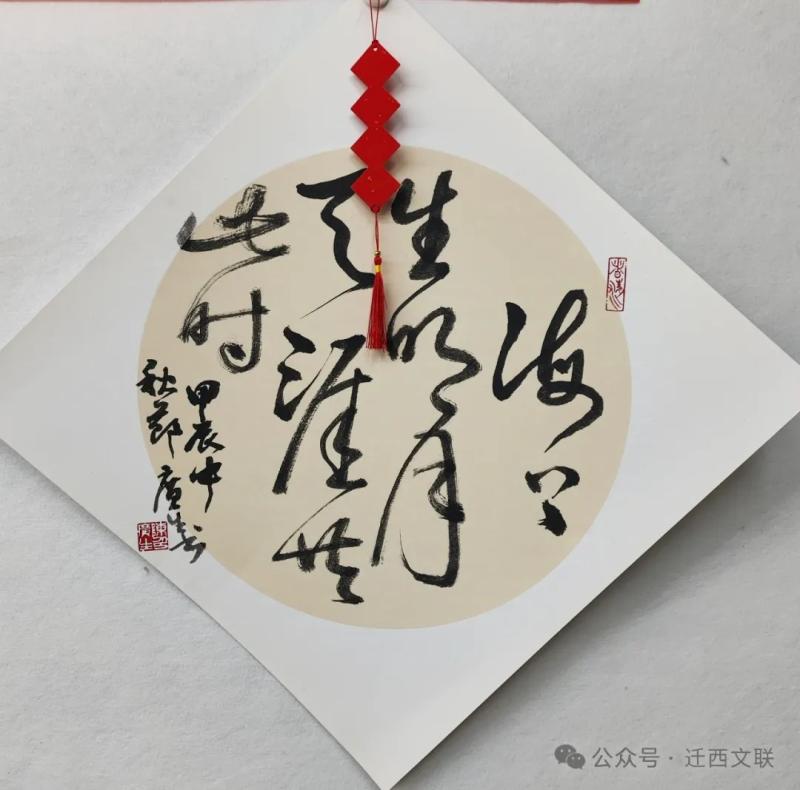 海上
生明月
天涯共
此时
甲辰中
秋节 广生书
公众号·迁西文联